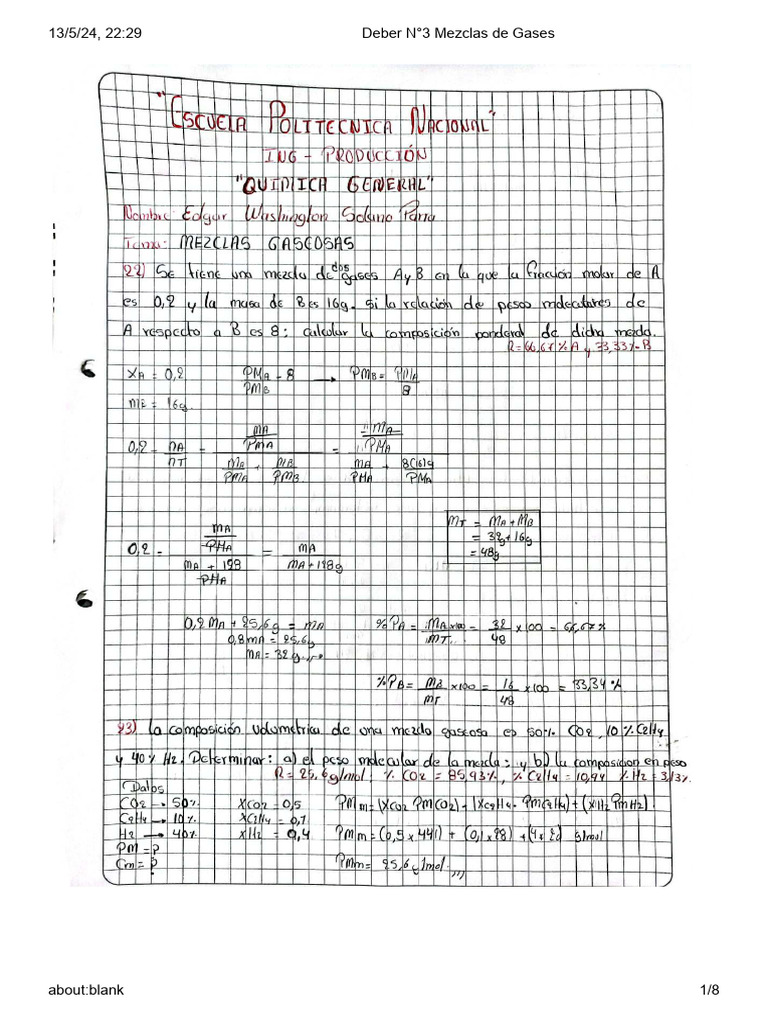 13/5/24, 22:29 Deber N°3 Mezclas de Gases
"ESCUELA POLITECNICA NACIONAL"
ING - PRODUCCIÓN
"QUIMICA GENERAL"
Nombre: Edgar Washington Solano Parra
Tema: MEZCLAS GASCOSAS
22) Se tiene una mezcla de dos gases A y B en la que la fracción molar de A
es 0,2 y la masa de B es 16g. si la relación de pesos moleculares de
A respecto a B es 8; calcular la composición ponderal de dicha mezcla.
R = 66,67% A y 33,33% B
XA = 0,2 PMA/PMB = 8 → PMB = PMA/8
mB = 16g
0,2 = nA/nT = (mA/PMA)/(mA/PMA + mB/PMB) = (mA/PMA)/(mA/PMA + 8(16)g/PMA)
MT = MA + MB
= 32g + 16g
= 48g
0,2 = (mA/PMA)/((mA + 128)/PMA) = mA/(mA + 128g)
0,2 MA + 25,6g = mA
0,8mA = 25,6g
MA = 32g
%PA = MA x100/MT = 32/48 x 100 = 66,67%
%PB = MB/MT x100 = 16/48 x 100 = 33,34%
23) la composición volumetrica de una mezcla gaseosa es 50% CO2, 10% C2H4
y 40% H2. Determinar: a) el peso molecular de la mezcla; y b) la composicion en peso
R = 25,6 g/mol; % CO2 = 85,93%, % C2H4 = 10,94 % H2 = 3,13%
Datos
CO2 → 50% XCO2 = 0,5 PMm = (XCO2 PMCO2) + (XC2H4 · PMC2H4) + (XH2 PMH2)
C2H4 → 10% XC2H4 = 0,1
H2 → 40% XH2 = 0,4 PMm = (0,5 x 44) + (0,1 x 28) + (4 x 2) g/mol
PM = ?
Cm = ? PMm = 25,6 g/mol
about:blank 1/8